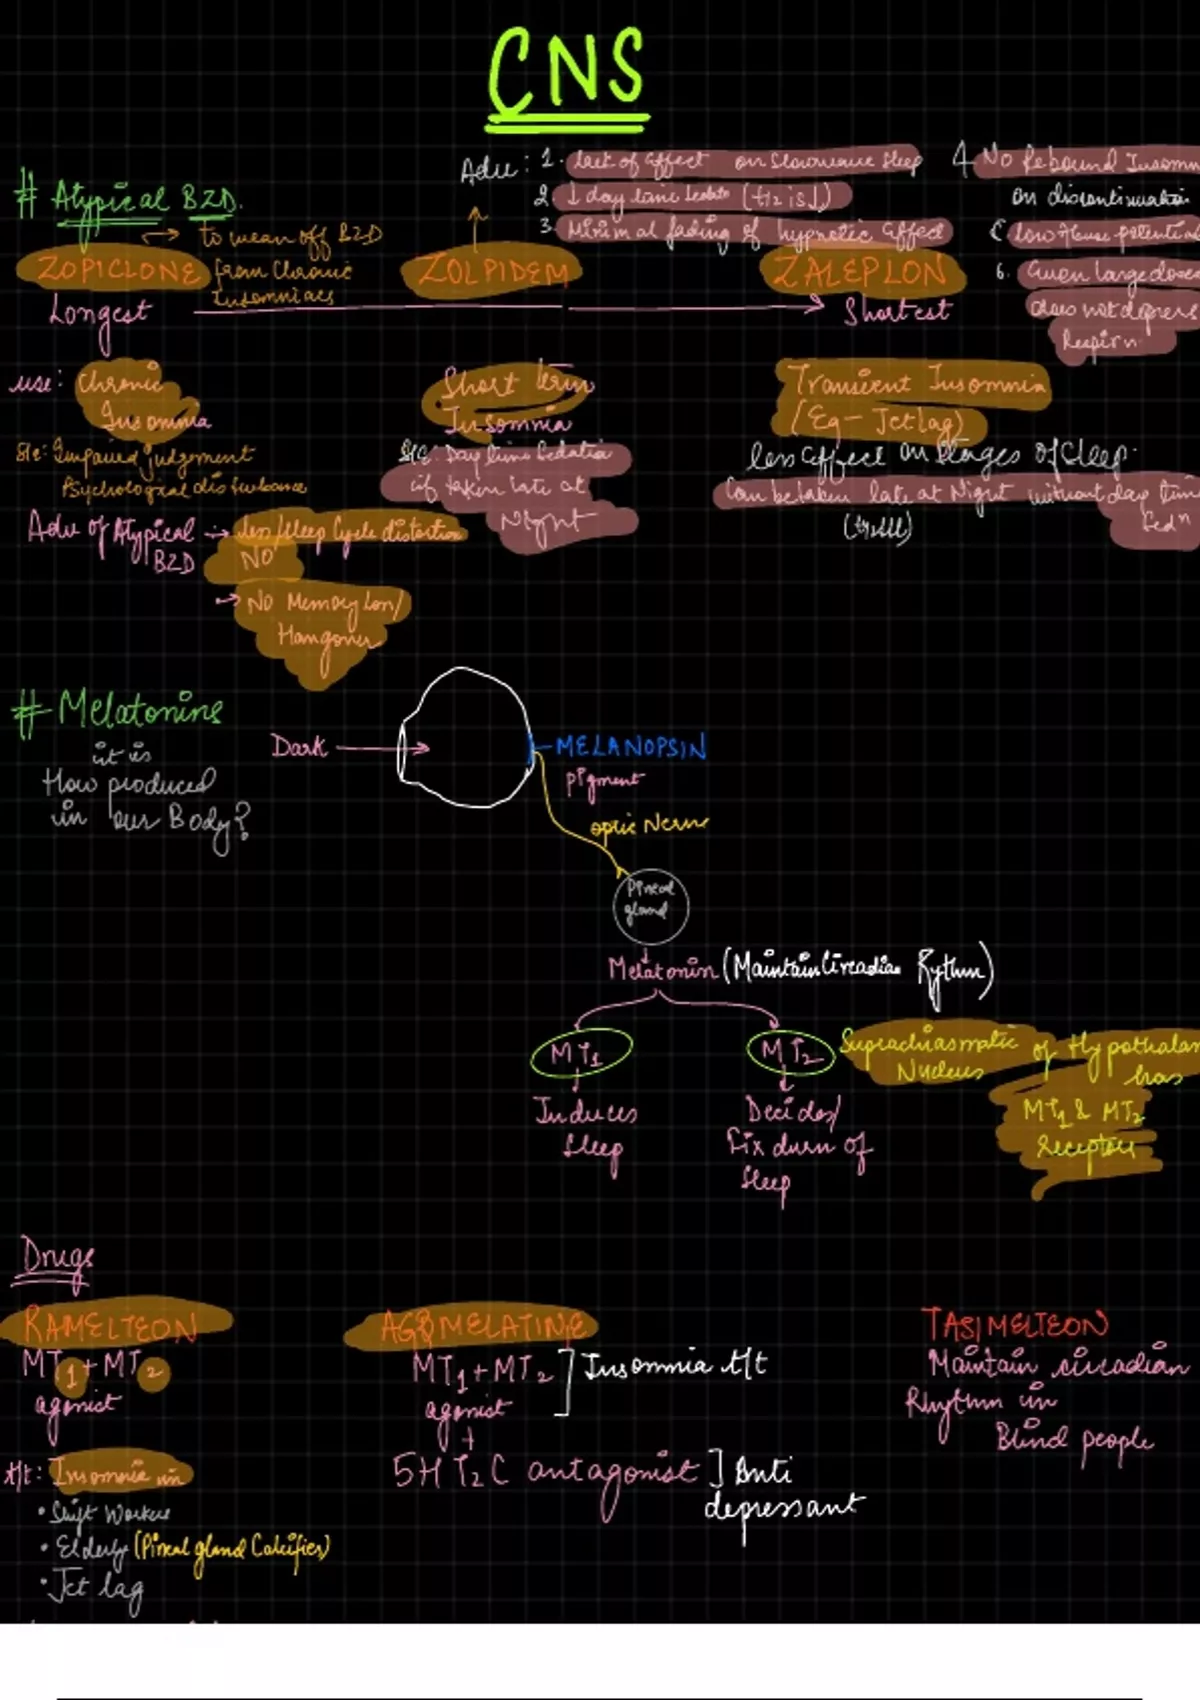 CNS
# Atypical BZD.
Adv: 1. lack of effect on slowwave sleep
2. ↓ day time sedatn (t1/2 is ↓)
3. Minimal fading of hypnotic effect
4 No Rebound Insomn
on discontinuation
5 low Abuse potential
6. Even large doses
does not depress
Respirn.
→ to wean off BZD
from Chronic
Insomniacs
ZOPICLONE
ZOLPIDEM
ZALEPLON
Longest
Shortest
use: Chronic
Insomnia
S/e: Impaired judgement
Psychological disturbance
Short term
Insomnia
S/e: Day time Sedation
if taken late at
Night
Transient Insomnia
(Eg - Jet lag)
less effect on stages of sleep.
Can be taken late at Night without day time
Sedn
Adv of Atypical BZD → less/sleep Cycle distortion
NO
→ No Memory loss/
Hangover
# Melatonins
it is
How produced
in our Body?
Dark →
MELANOPSIN
pigment
optic Nerve
Pineal
gland
Melatonin (Maintain Circadian Rythm)
MT1
Induces
Sleep
MT2
Decides/
Fix durn of
Sleep
Suprachiasmatic Nucleus of Hypothalam
has
MT1 & MT2
Receptors
Drugs
RAMELTEON
MT1+MT2
agonist
t/t: Insomnia in
• Shift Workers
• Elderly (Pineal gland Calcifies)
• Jet lag
AGOMELATINE
MT1+MT2
agonist
] Insomnia t/t
+
5HT2C antagonist ] Anti
depressant
TASIMELTEON
Maintain circadian
Rhythm in
Blind people